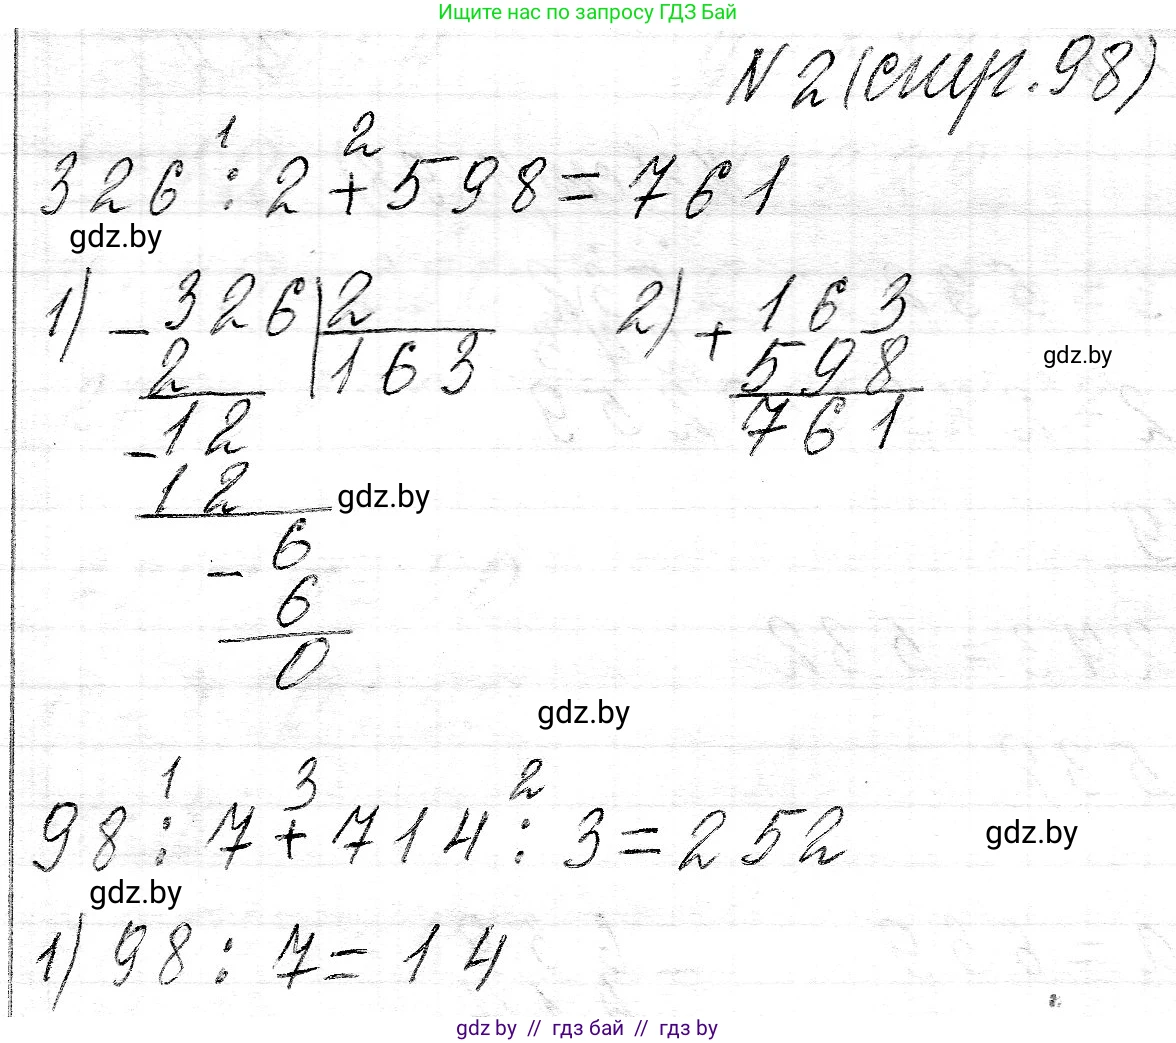 Ищите нас по запросу ГДЗ Бай
N 2 (стр. 98)
1 2
326 : 2 + 598 = 761
gdz.by
1) - 326 | 2 2) + 163
2 163 598 gdz.by
- 12 761
12 gdz.by
- 6
6
0
gdz.by
1 3 2
98 : 7 + 714 : 3 = 252
gdz.by
gdz.by
1) 98 : 7 = 14
gdz.by // гдз бай // гдз by